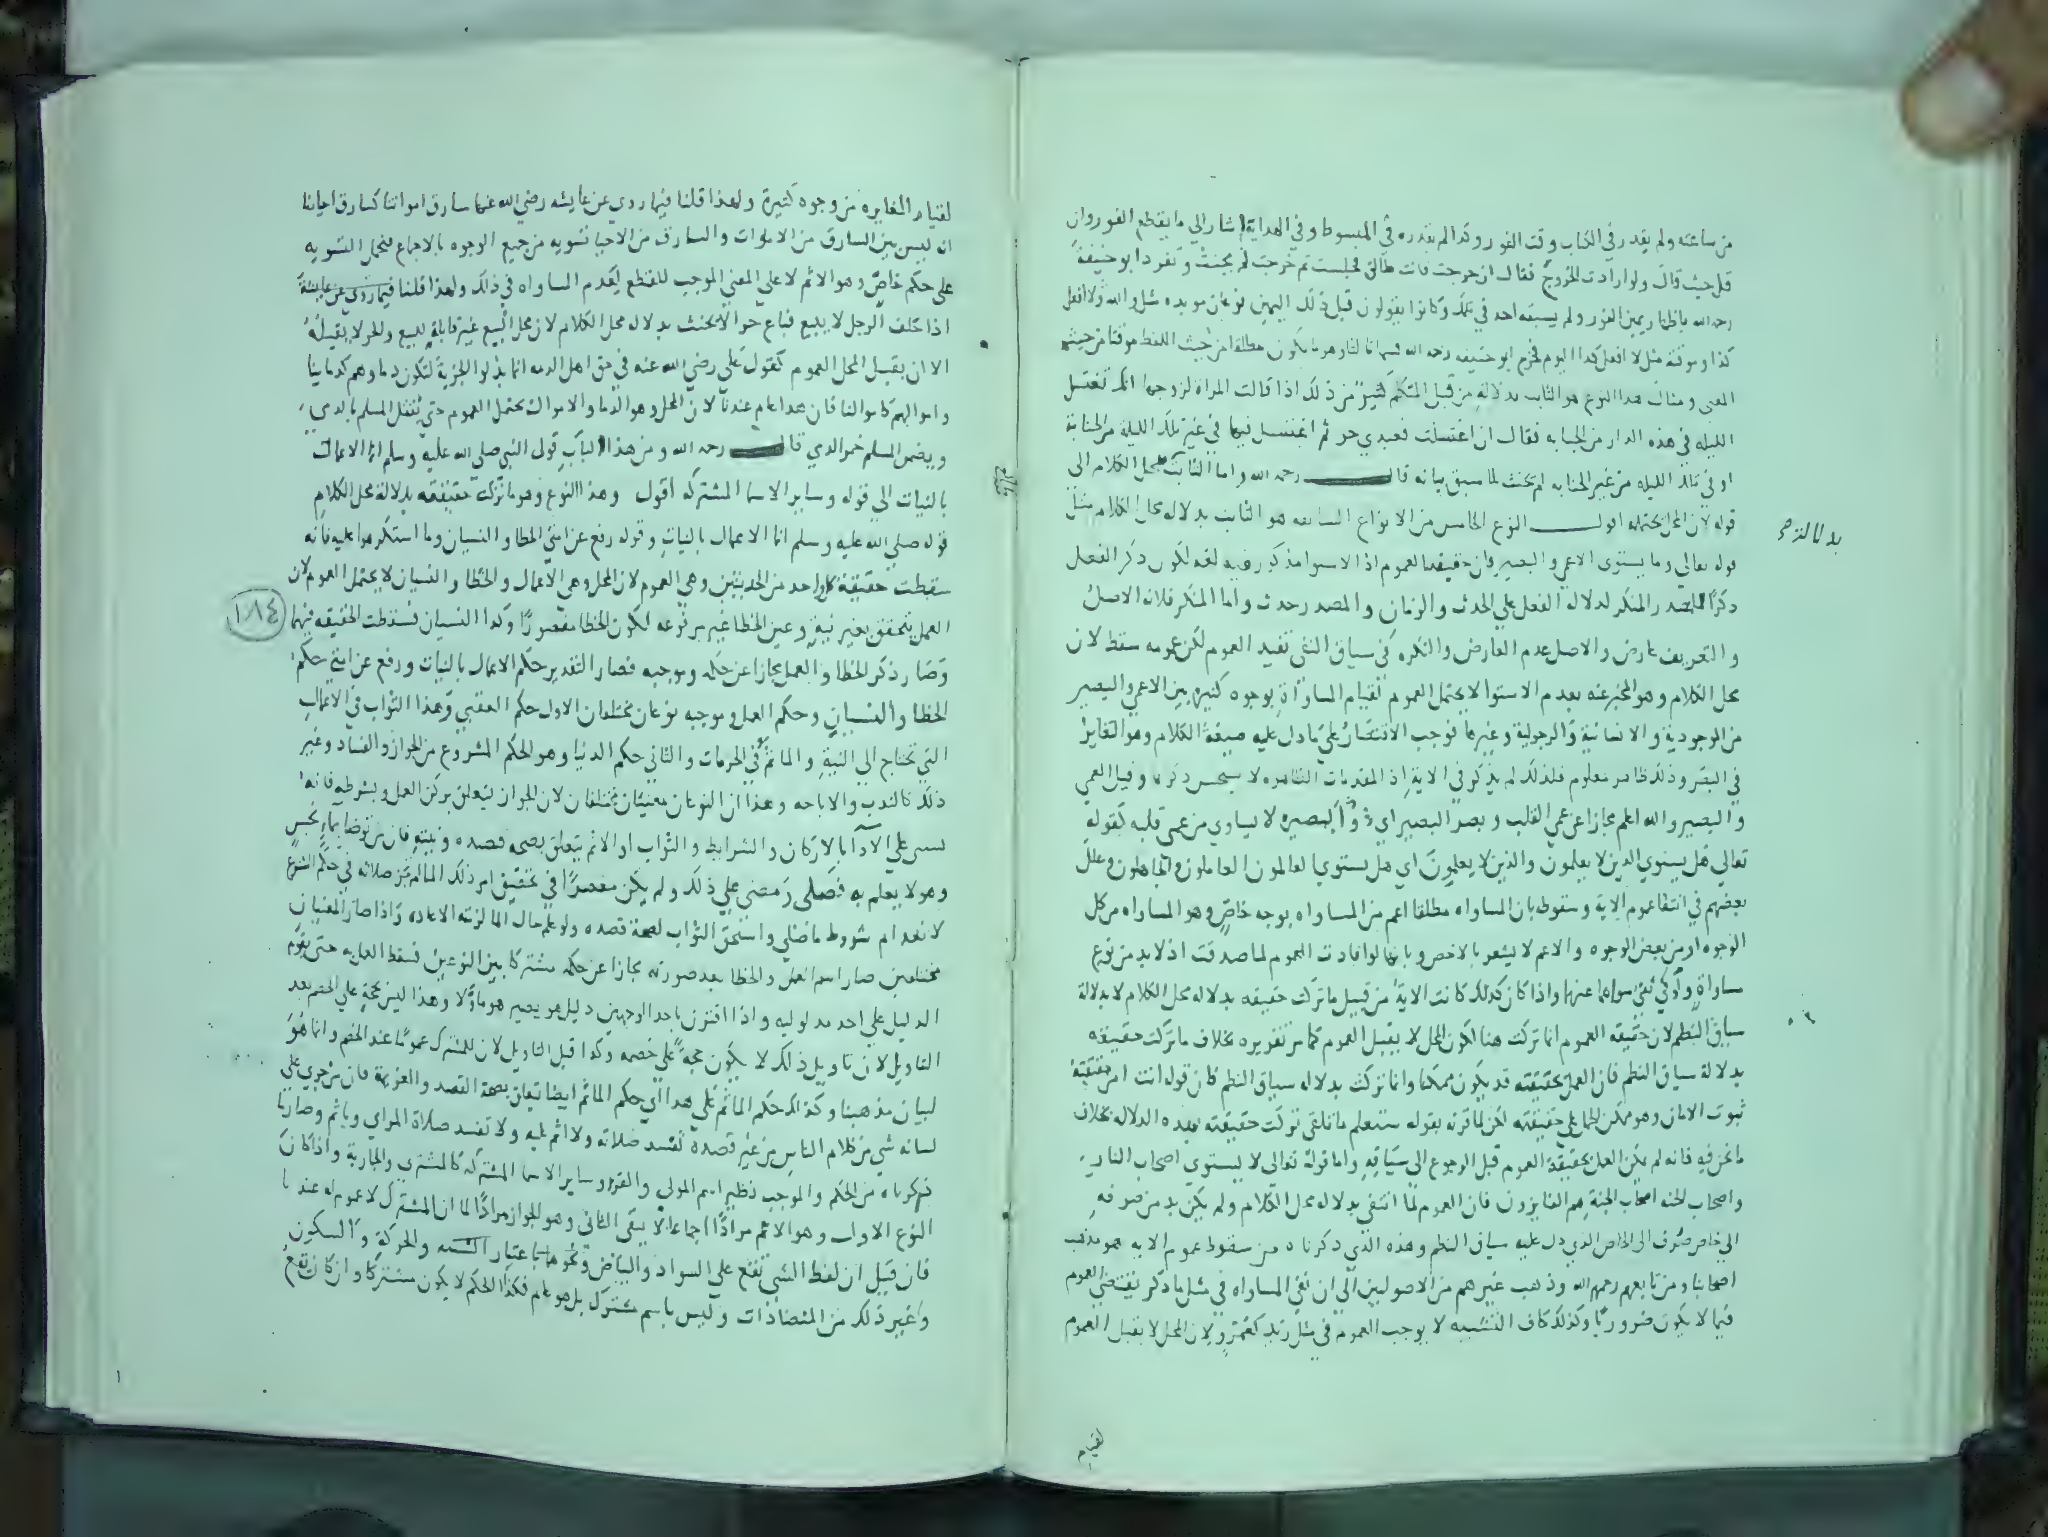 من ساعته ولم يقدر في الكتاب وقت الفور وكذا لم يقدره في المبسوط وفي الهداية اشار الي ما يقطع الفور وان
قل حيث قال ولو ارادت الخروج فقال ان خرجت فانت طالق فجلست ثم خرجت لم يحنث وتفرد ابو حنيفة
رحمه الله باظهار يمين الفور ولم يسبقه احد في ذلك وكانوا يقولون قبل ذلك اليمين نوعان موبده مثل والله لا افعل
كذا وموقته مثل لا افعل كذا اليوم فخرج ابو حنيفه رحمه الله قسما ثالثا وهو ما يكون مطلقا من حيث اللفظ موقتا من حيث
المعني ومثال هذا النوع هو الثابت بدلالة من قبل المتكلم كثير من ذلك اذا قالت المراة لزوجها انك تغتسل
الليله في هذه الدار من الجنابه فقال ان اغتسلت فعبدي حر ثم اغتسل فيها في غير تلك الليلة من الجنابة
او في تلك الليله من غير الجنابه لم يحنث لما سبق بيانه قال رحمه الله واما الثابت بمحل الكلام الى
قوله لان المحل يحتمله اقول النوع الخامس من الانواع السابقه هو الثابت بدلاله محل الكلام مثل
قوله تعالي وما يستوى الاعمى والبصير فان حقيقته العموم اذ الاستوا مذكور فيه لغة لكون ذكر الفعل
ذكرا للمصدر المنكر لدلاله الفعل علي الحدث والزمان والمصدر حدث واما المنكر فلانه الاصل
والتعريف عارض والاصل عدم العارض والنكره في سياق النفي تفيد العموم لكن عمومه سقط لان
محل الكلام وهو المخبر عنه بعدم الاستوا لا يحتمل العموم لقيام المساواة بوجوه كثيره بين الاعمي والبصير
من الوجودية والانسانية والرجولية وغيرها فوجب الاقتصار على ما دل عليه صيغة الكلام وهو التغاير
في البصر وذلك ظاهر معلوم فلذلك لم يذكر في الاية اذ المقدمات الظاهره لا يحسن ذكرها وقيل العمي
والبصير والله اعلم مجاز عن عمي القلب وبصر البصيرة اي ذو البصيره لا يساوي من عمى قلبه كقوله
تعالي هل يستوي الذين يعلمون والذين لا يعلمون اي هل يستوي العالمون العاملون والجاهلون وعلل
بعضهم في انتفا عموم الاية وسقوطه بان المساواه مطلقا اعم من المساواه بوجه خاص وهو المساواه من كل
الوجوه او من بعض الوجوه والاعم لا يشعر بالاخص وبانها لو افادت العموم لما صدقت اذ لا بد من نوع
مساواة ولو في نفي سواهما عنهما واذا كان كذلك كانت الاية من قبيل ما تركت حقيقه بدلاله محل الكلام لا بدلالة
سياق النظم لان حقيقه العموم انما تركت هنا لكون المحل لا يقبل العموم كما مر تقريره بخلاف ما تركت حقيقته
بدلالة سياق النظم فان العمل بحقيقته قد يكون ممكنا وانما تركت بدلاله سياق النظم كان قوله انت امن حقيقته
ثبوت الامان وهو ممكن الحمل على حقيقته لكن لما قرنه بقوله ستعلم ما تلقى تركت حقيقته بهذه الدلاله بخلاف
ما نحن فيه فانه لم يكن العمل بحقيقة العموم قبل الرجوع الى سياقه واما قوله تعالى لا يستوي اصحاب النار
واصحاب الجنه اصحاب الجنة هم الفايزون فان العموم لما انتفى بدلاله محل الكلام ولم يكن بد من صرفه
الى خاص صرف الى الخاص الذي دل عليه سياق النظم وهذه الذي ذكرناه من سقوط عموم الايه هو مذهب
اصحابنا ومن تابعهم رحمهم الله وذهب غيرهم من الاصوليين الى ان نفي المساواه في مثل ما ذكر يقتضي العموم
فيما لا يكون ضروريا وكذلك كاف التشبيه لا يوجب العموم في مثل زيد كعمرو لان المحل لا يقبل العموم
لقيام
لقيام المغايره من وجوه كثيرة ولهذا قلنا فيما روي عن عايشه رضي الله عنها سارق امواتنا كسارق احيانا
انه ليس بين السارق من الاموات والسارق من الاحيا تسويه من جميع الوجوه بالاجماع فيحمل التسويه
على حكم خاص وهو الاثم لا على المعنى الموجب للقطع لعدم المساواه في ذلك ولهذا قلنا فيما روي عن عايشة
اذا حلف الرجل لا يبيع فباع حرا لا يحنث بدلاله محل الكلام لان محل البيع غير قابل للبيع والحر لا يقبله
الا ان يقبل المحل العموم كقول على رضي الله عنه في حق اهل الذمه انما بذلوا الجزية لتكون دماوهم كدماينا
واموالهم كاموالنا فان هذا عام عندنا لان المحل وهو الدما والاموال يحتمل العموم حتى يقتل المسلم بالذمي
ويضمن المسلم خمر الذمي قال رحمه الله ومن هذا الباب قول النبي صلى الله عليه وسلم انما الاعمال
بالنيات الى قوله وساير الاسما المشتركه اقول وهذا النوع وهو ما تركت حقيقته بدلالة محل الكلام
قوله صلى الله عليه وسلم انما الاعمال بالنيات وقوله رفع عن امتي الخطا والنسيان وما استكرهوا عليه فانه
سقطت حقيقة كل واحد من الحديثين وهي العموم لان المحل وهي الاعمال والخطا والنسيان لا يحتمل العموم لان
العمل يتحقق بغير نية وعين الخطا غير مرفوعه لكون الخطا مقصورا وكذا النسيان فسقطت الحقيقه فيهما
١٨٤
وصار ذكر الخطا والعمل مجازا عن حكمه وموجبه فصار التقدير حكم الاعمال بالنيات ورفع عن امتي حكم
الخطا والنسيان وحكم العمل وموجبه نوعان مختلفان الاول حكم العقبي وهذا الثواب في الاعمال
التي تحتاج الى النية والماثم في الحرمات والثاني حكم الدنيا وهو الحكم المشروع من الجواز والفساد وغير
ذلك كالندب والاباحه وهذان النوعان معنيان مختلفان لان الجواز يتعلق بركن العمل وبشرطه فانه
الادا بالاركان والشرايط والثواب او الاثم يتعلق بصحه قصده ونيته فان من توضا بماء نجس
وهو لا يعلم به فصلى ومضى على ذلك ولم يكن مقصرا في تحقيق امر ذلك الما لم تجز صلاته في حكم الشرع
لانعدام شروط ما صلي واستحق الثواب لصحة قصده ولو علم حال الما لزمته الاعاده واذا صار المعنيان
مختلفين صار اسم العمل والخطا بعد صورته مجازا عن حكمه مشتركا بين النوعين فسقط العمل به حتى يقوم
الدليل علي احد مدلوليه واذا اقترن باحد الوجهين دليل هو يصير هو ماولا وهذا ليس بحجة علي الخصم بعد
التاويل لان تاويل ذلك لا يكون حجة على خصمه وكذا قبل التاويل لان للمشترك عموما عند الخصم وانما هو
لبيان مذهبنا وكذلك حكم الماثم على هذا اي حكم الماثم ايضا تعلق بصحة القصد والعزيمة فان من جري على
لسانه شي من كلام الناس من غير قصده تفسد صلاته ولا اثم عليه ولا تفسد صلاة المراي وياثم وصار ما
ذكرناه من الحكم والموجب نظير اسم المولى والقرو وساير الاسما المشتركه كالمشتري والجارية واذا كان
النوع الاول وهو الاثم مرادا اجماعا لا يبقى الثانى وهو الجواز مرادا لما ان المشترك لا عموم له عندنا
فان قيل ان لفظ الشي تقع على السواد والبياض ونحوهما والحركة والسكون
وغير ذلك من المتضادات وليس باسم مشترك بل هو عام فكذا الحكم لا يكون مشتركا وان كان تقع